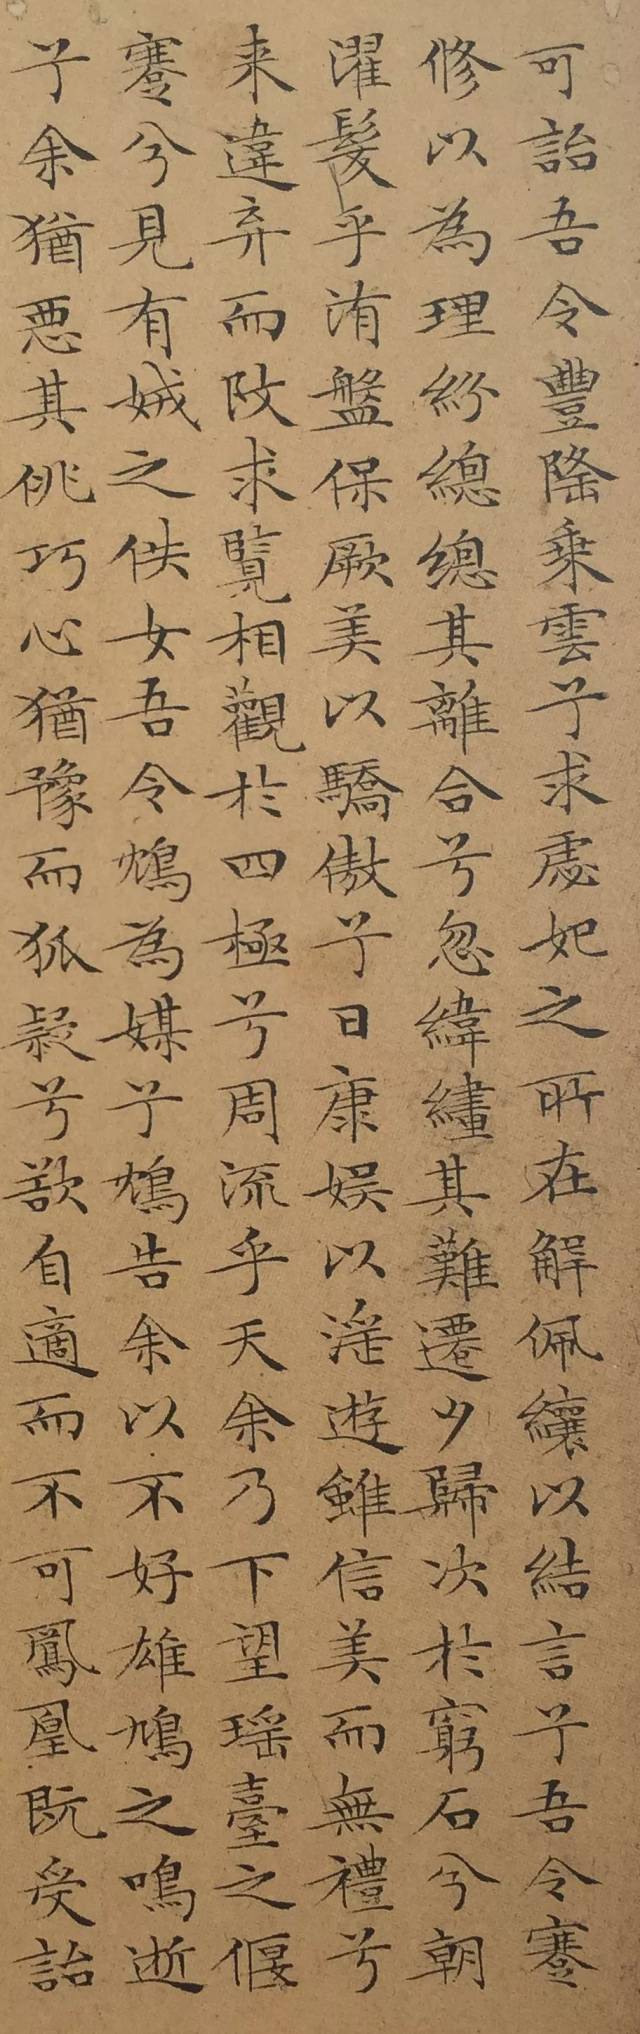 可詒吾令豐隆乗雲兮求虙妃之所在解佩纕以結言兮吾令蹇
修以為理紛總總其離合兮忽緯繣其難遷夕歸次於窮石兮朝
濯髮乎洧盤保厥美以驕傲兮日康娛以淫遊雖信美而無禮兮
来違弃而改求覽相觀於四極兮周流乎天余乃下望瑶臺之偃
蹇兮見有娀之佚女吾令鴆為媒兮鴆告余以不好雄鳩之鳴逝
兮余猶悪其佻巧心猶豫而狐疑兮欲自適而不可鳳凰既受詒